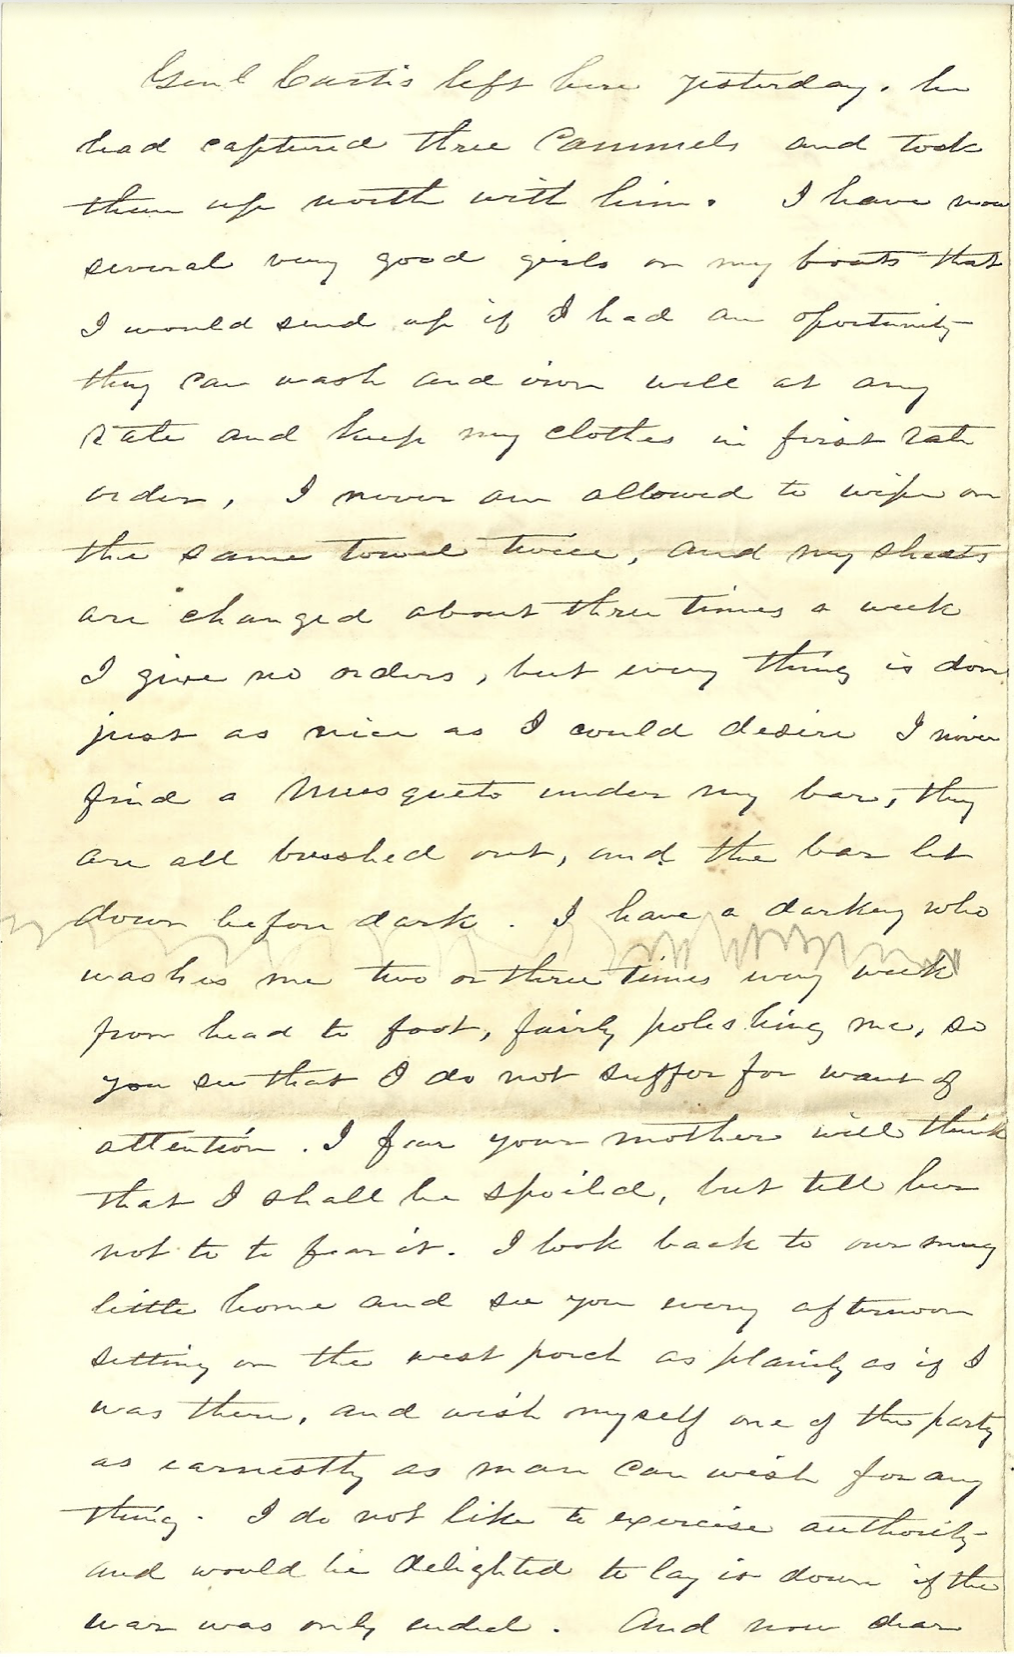 Genl Curtis left here yesterday. he
had captured three Cammels and took
them up north with him. I have now
several very good girls on my boats that
I would send up if I had an oportunity
they can wash and iron well at any
rate and keep my clothes in first rate
order, I never am allowed to wipe on
the same towel twice, and my sheets
are changed about three times a week
I give no orders, but every thing is done
just as nice as I could desire I never
find a Musqueto under my bar, they
are all brushed out, and the bar let
down before dark. I have a darkey who
washes me two or three times every week
from head to foot, fairly poleshing me, so
you see that I do not suffer for want of
attention. I fear your mother will think
that I shall be spoild, but tell her
not to to fear it. I look back to our snug
little home and see you every afternoon
setting on the west porch as plainly as if I
was there, and wish myself one of the party
as earnestly as man can wish for any
thing. I do not like to exercise authority
and would be delighted to lay it down if the
war was only ended. And now dear